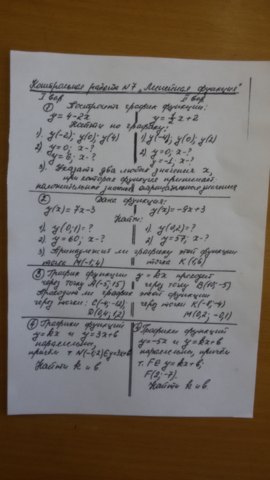 Контрольная работа №7 „Линейная функция"
I вар II вар
① Построить график функции:
y = 4-2x y = ½x+2
Найти по графику:
1) y(-2); y(0); y(4) 1) y(-4), y(0); y(2)
2) y=0; x-? 2) y=0; x-?
y=8; x-? y=-1; x-?
3) Указать два любых значения x,
при которых функция принимает
② Дана функция:
y(x) = 7x-3 y(x) = -9x+3
Найти:
1) y(0,1) = ? 1) y(0,2) = ?
2) y = 60; x-? 2) y = 57; x-?
3) Принадлежит ли графику этой функции
точка M(-1;4) точка K(1;6)
③ График функции y = kx проходит
через точку A(-5;15) через точку B(10;-5)
Проходит ли график этой функции
через точки: C(-4;-12) через точки K(-8;-4)
D(0,4;1,2) M(0,2;-0,1)
④ Графики функций ④ Графики функций
y=kx и y=3x+b y=-5x и y=kx+b
параллельны, параллельны, причём
причём т. N(-1;2)∈y=3x+b т. F∈ y=kx+b;
Найти k и b F(2;-7).
Найти k и b